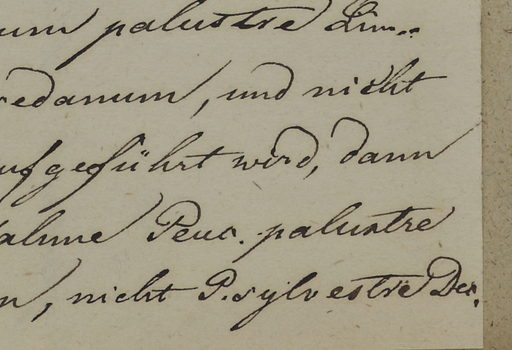 um palustre Lin..
edanum, und nicht
ufgeführt wird, dann
ahme Peuc. palustre
n, nicht P. sylvestre Dec.